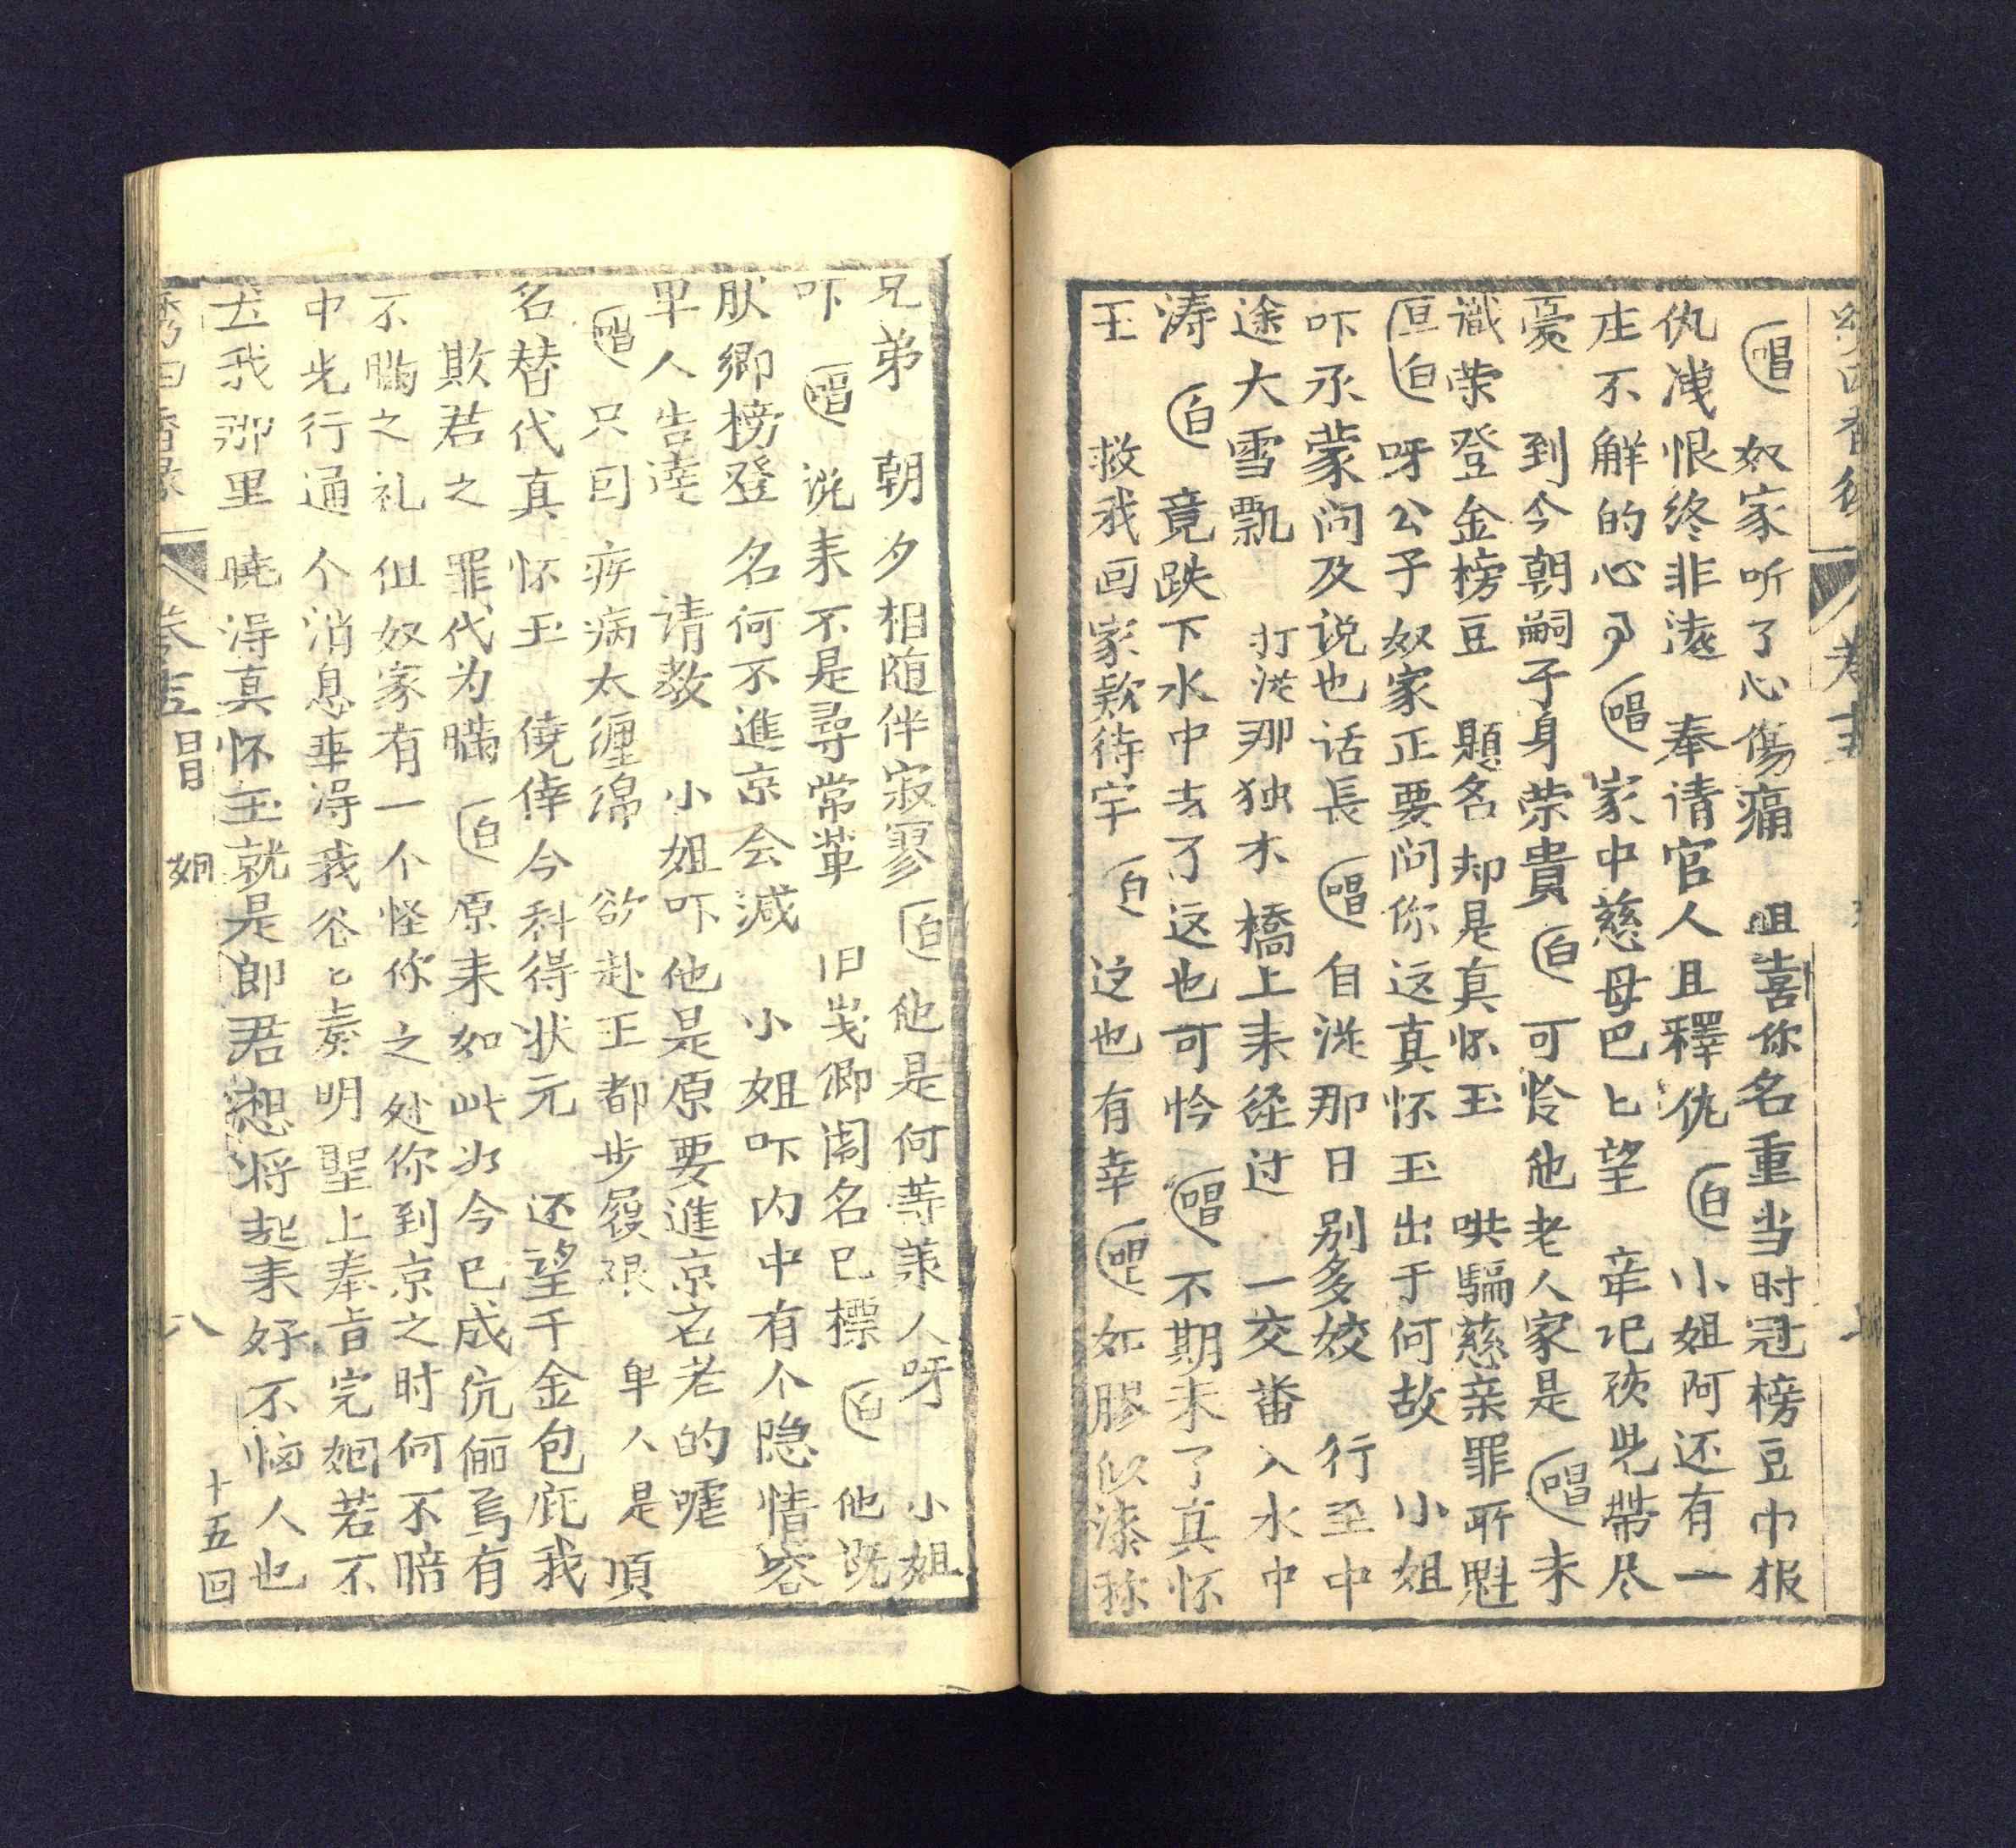 唱 奴家听了心傷痛 且喜你名重当时冠榜豆中报
仇洩恨终非遠 奉请官人且釋仇 白 小姐阿还有一
庄不解的心 唱 家中慈母巴匕望 尽
憂 到今朝嗣子身荣貴 白 可怜他老人家是 唱 未
識荣登金榜豆 題名却是真怀玉 哄騙慈亲罪所魁
白 呀公子奴家正要问你这真怀玉出于何故 小姐
吓承蒙问及说也话長 唱 自従那日别多姣 行至中
途大雪飘 打従那独木橋上来径过 一交畨入水中
涛 白 竟跌下水中去了这也可怜 唱 不期来了真怀
玉 救我回家欵待牢 白 这也有幸 唱 如膠似漆称
兄弟 朝夕相随伴寂寥 白 他是何等英人呀 小姐
吓 唱 说来不是尋常輩 旧歲鄉闱名已標 白 他既
然鄉榜登名何不進京会减 小姐吓内中有个隐情容
卑人告達 请教 小姐吓他是原要進京它老的嚯
唱 只因疾病太缠绵 欲赴王都步履艰 卑人是頂
名替代真怀玉 僥倖今科得状元 还望千金包庇我
欺君之罪代为瞒 白 原来如此尔今已成伉俪焉有
不瞒之礼但奴家有一个怪你之处你到京之时何不暗
中先行通个消息亊得我爷匕奏明聖上奉旨完姻若不
去我那里曉得真怀玉就是郎君想将起来好不恼人也
唱 姻 八 十五回